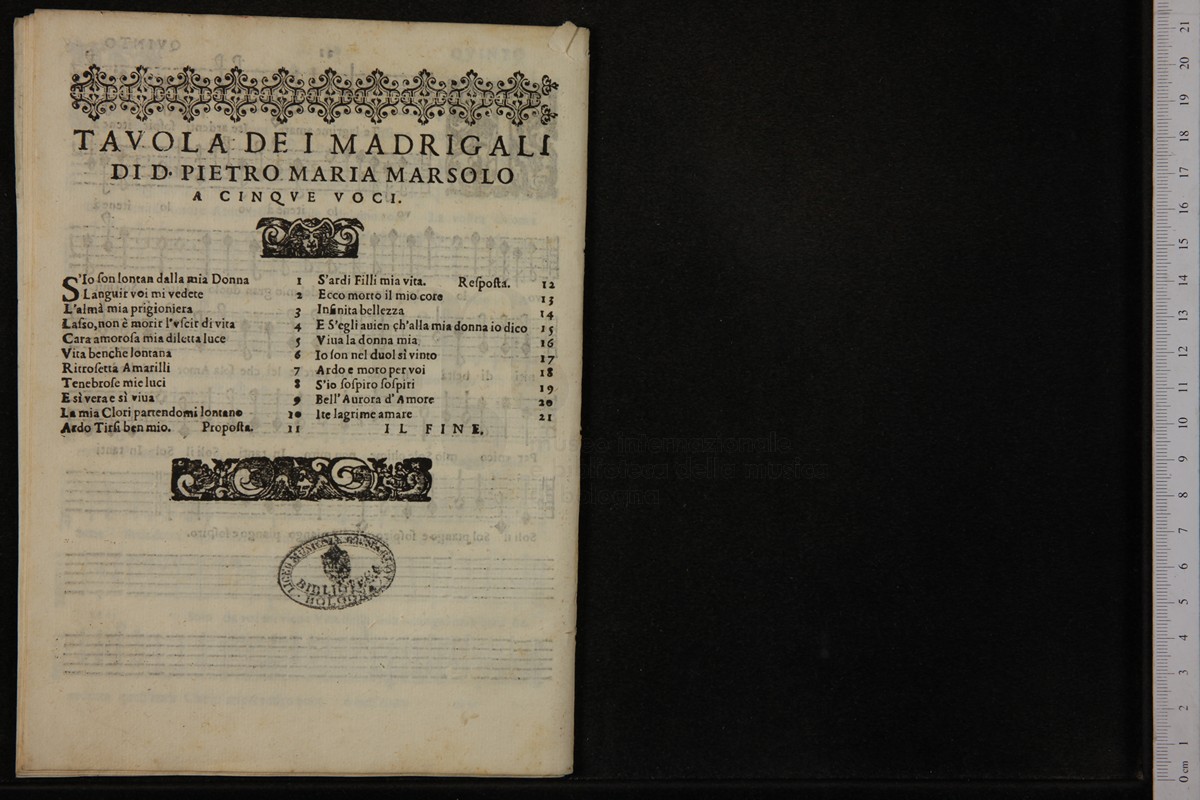 TAVOLA DE I MADRIGALI
DI D. PIETRO MARIA MARSOLO
A CINQVE VOCI.
S'Io ſon lontan dalla mia Donna 1
Languir voi mi vedete 2
L'alma mia prigioniera 3
Laſſo, non è morir l'vſcir di vita 4
Cara amoroſa mia diletta luce 5
Vita benche lontana 6
Ritroſetta Amarilli 7
Tenebroſe mie luci 8
E sì vera e sì viua 9
La mia Clori partendomi lontano 10
Ardo Tirſi ben mio. Propoſta. 11
S'ardi Filli mia vita. Reſpoſta. 12
Ecco morto il mio core 13
Infinita bellezza 14
E S'egli auien ch'alla mia donna io dico 15
Viua la donna mia 16
Io ſon nel duol sì vinto 17
Ardo e moro per voi 18
S'io ſoſpiro ſoſpiri 19
Bell'Aurora d'Amore 20
Ite lagrime amare 21
IL FINE.
BIBLIOTECA
BOLOGNA
museo internazionale
della musica
bologna
21
20
19
18
17
16
15
14
13
12
11
10
9
8
7
6
5
4
3
2
1
0 cm